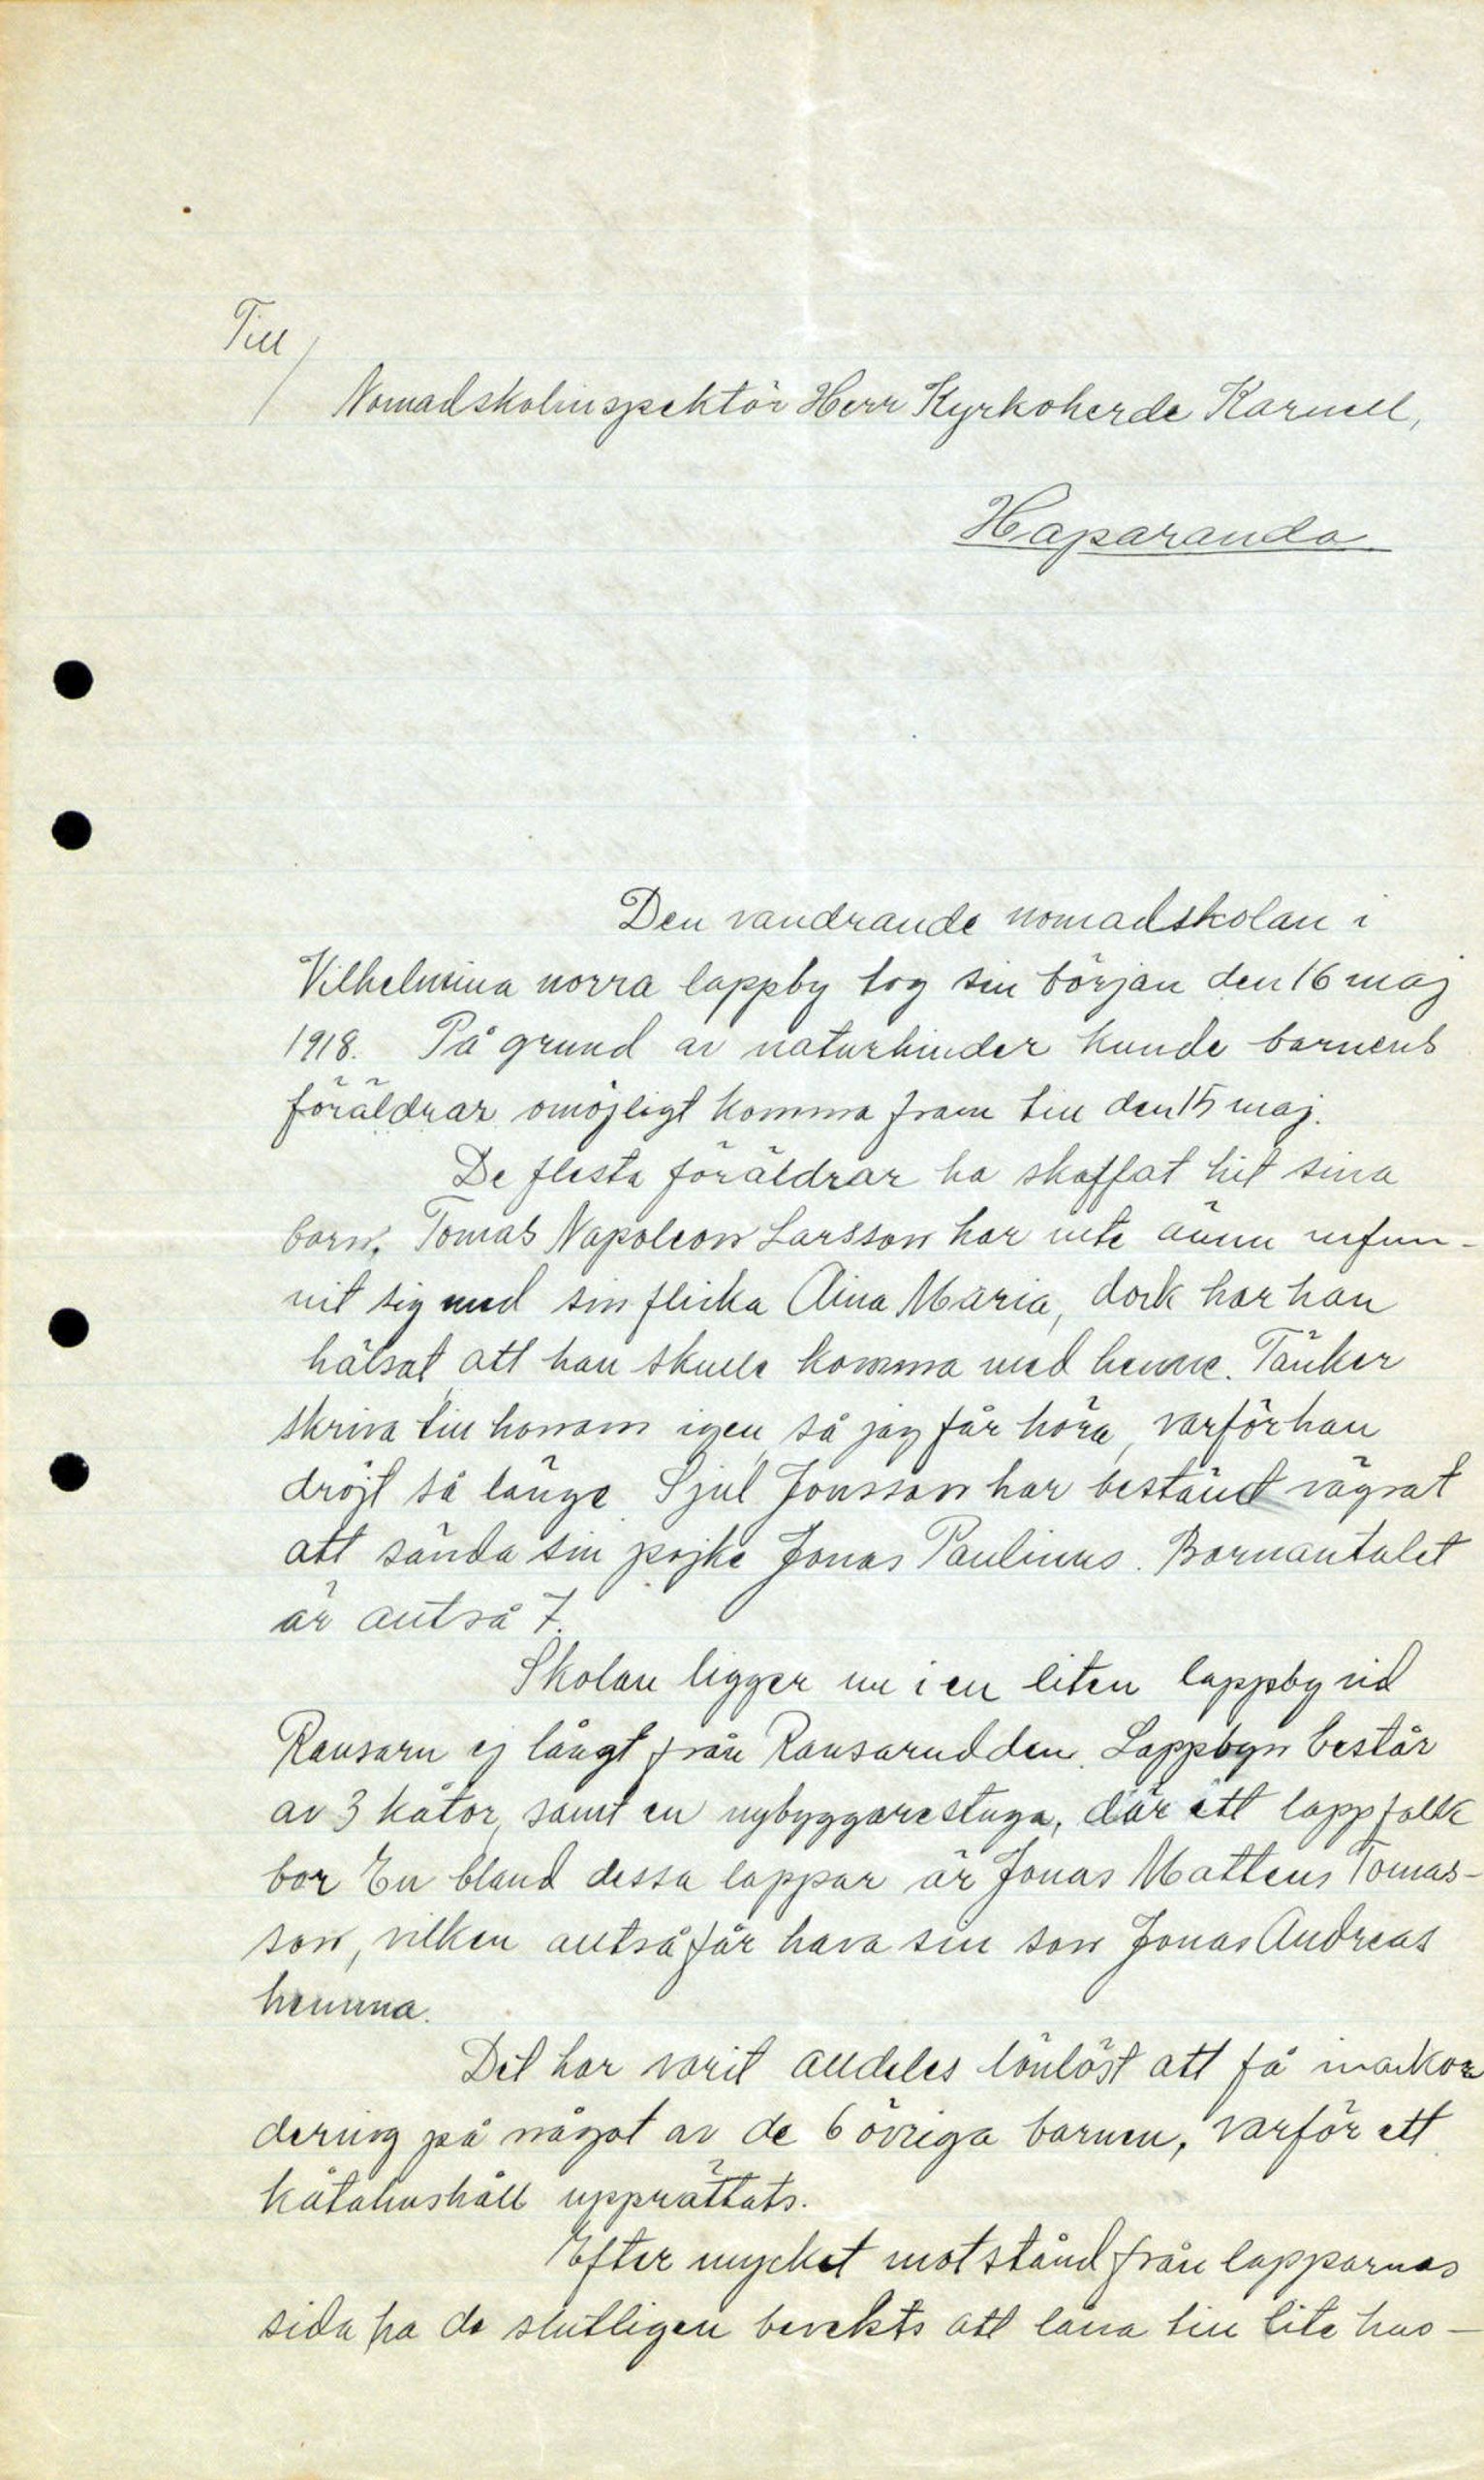 Till
Nomadskolinspektör Herr Kyrkoherde Karnell,
Haparanda
Den vandrande nomadskolan i
Vilhelmina norra lappby tog sin början den 16 maj
1918. På grund av naturhinder kunde barnens
föräldrar omöjligt komma fram till den 15 maj.
De flesta föräldrar ha skaffat hit sina
barn. Tomas Napoleon Larsson har inte ännu infun-
nit sig med sin flicka Aina Maria, dock har han
hälsat att han skulle komma med henne. Tänker
skriva till honom igen, så jag får höra, varför han
dröjt så länge. Sjul Jonsson har bestämt vägrat
att sända sin pojke Jonas Paulinus. Barnantalet
är alltså 7.
Skolan ligger nu i en liten lappby vid
Ransarn ej långt från Ransarudden. Lappbyn består
av 3 kåtor, samt en nybyggarestuga, där ett lappfolk
bor En bland dessa lappar är Jonas Matteus Tomas-
son, vilken alltså får hava sin son Jonas Andreas
hemma.
Det har varit alldeles lönlöst att få inackor
dering på något av de 6 övriga barnen, varför ett
kåtahushåll upprättats.
Efter mycket motstånd från lapparnas
sida ha de slutligen bevekts att låna till lite hus-